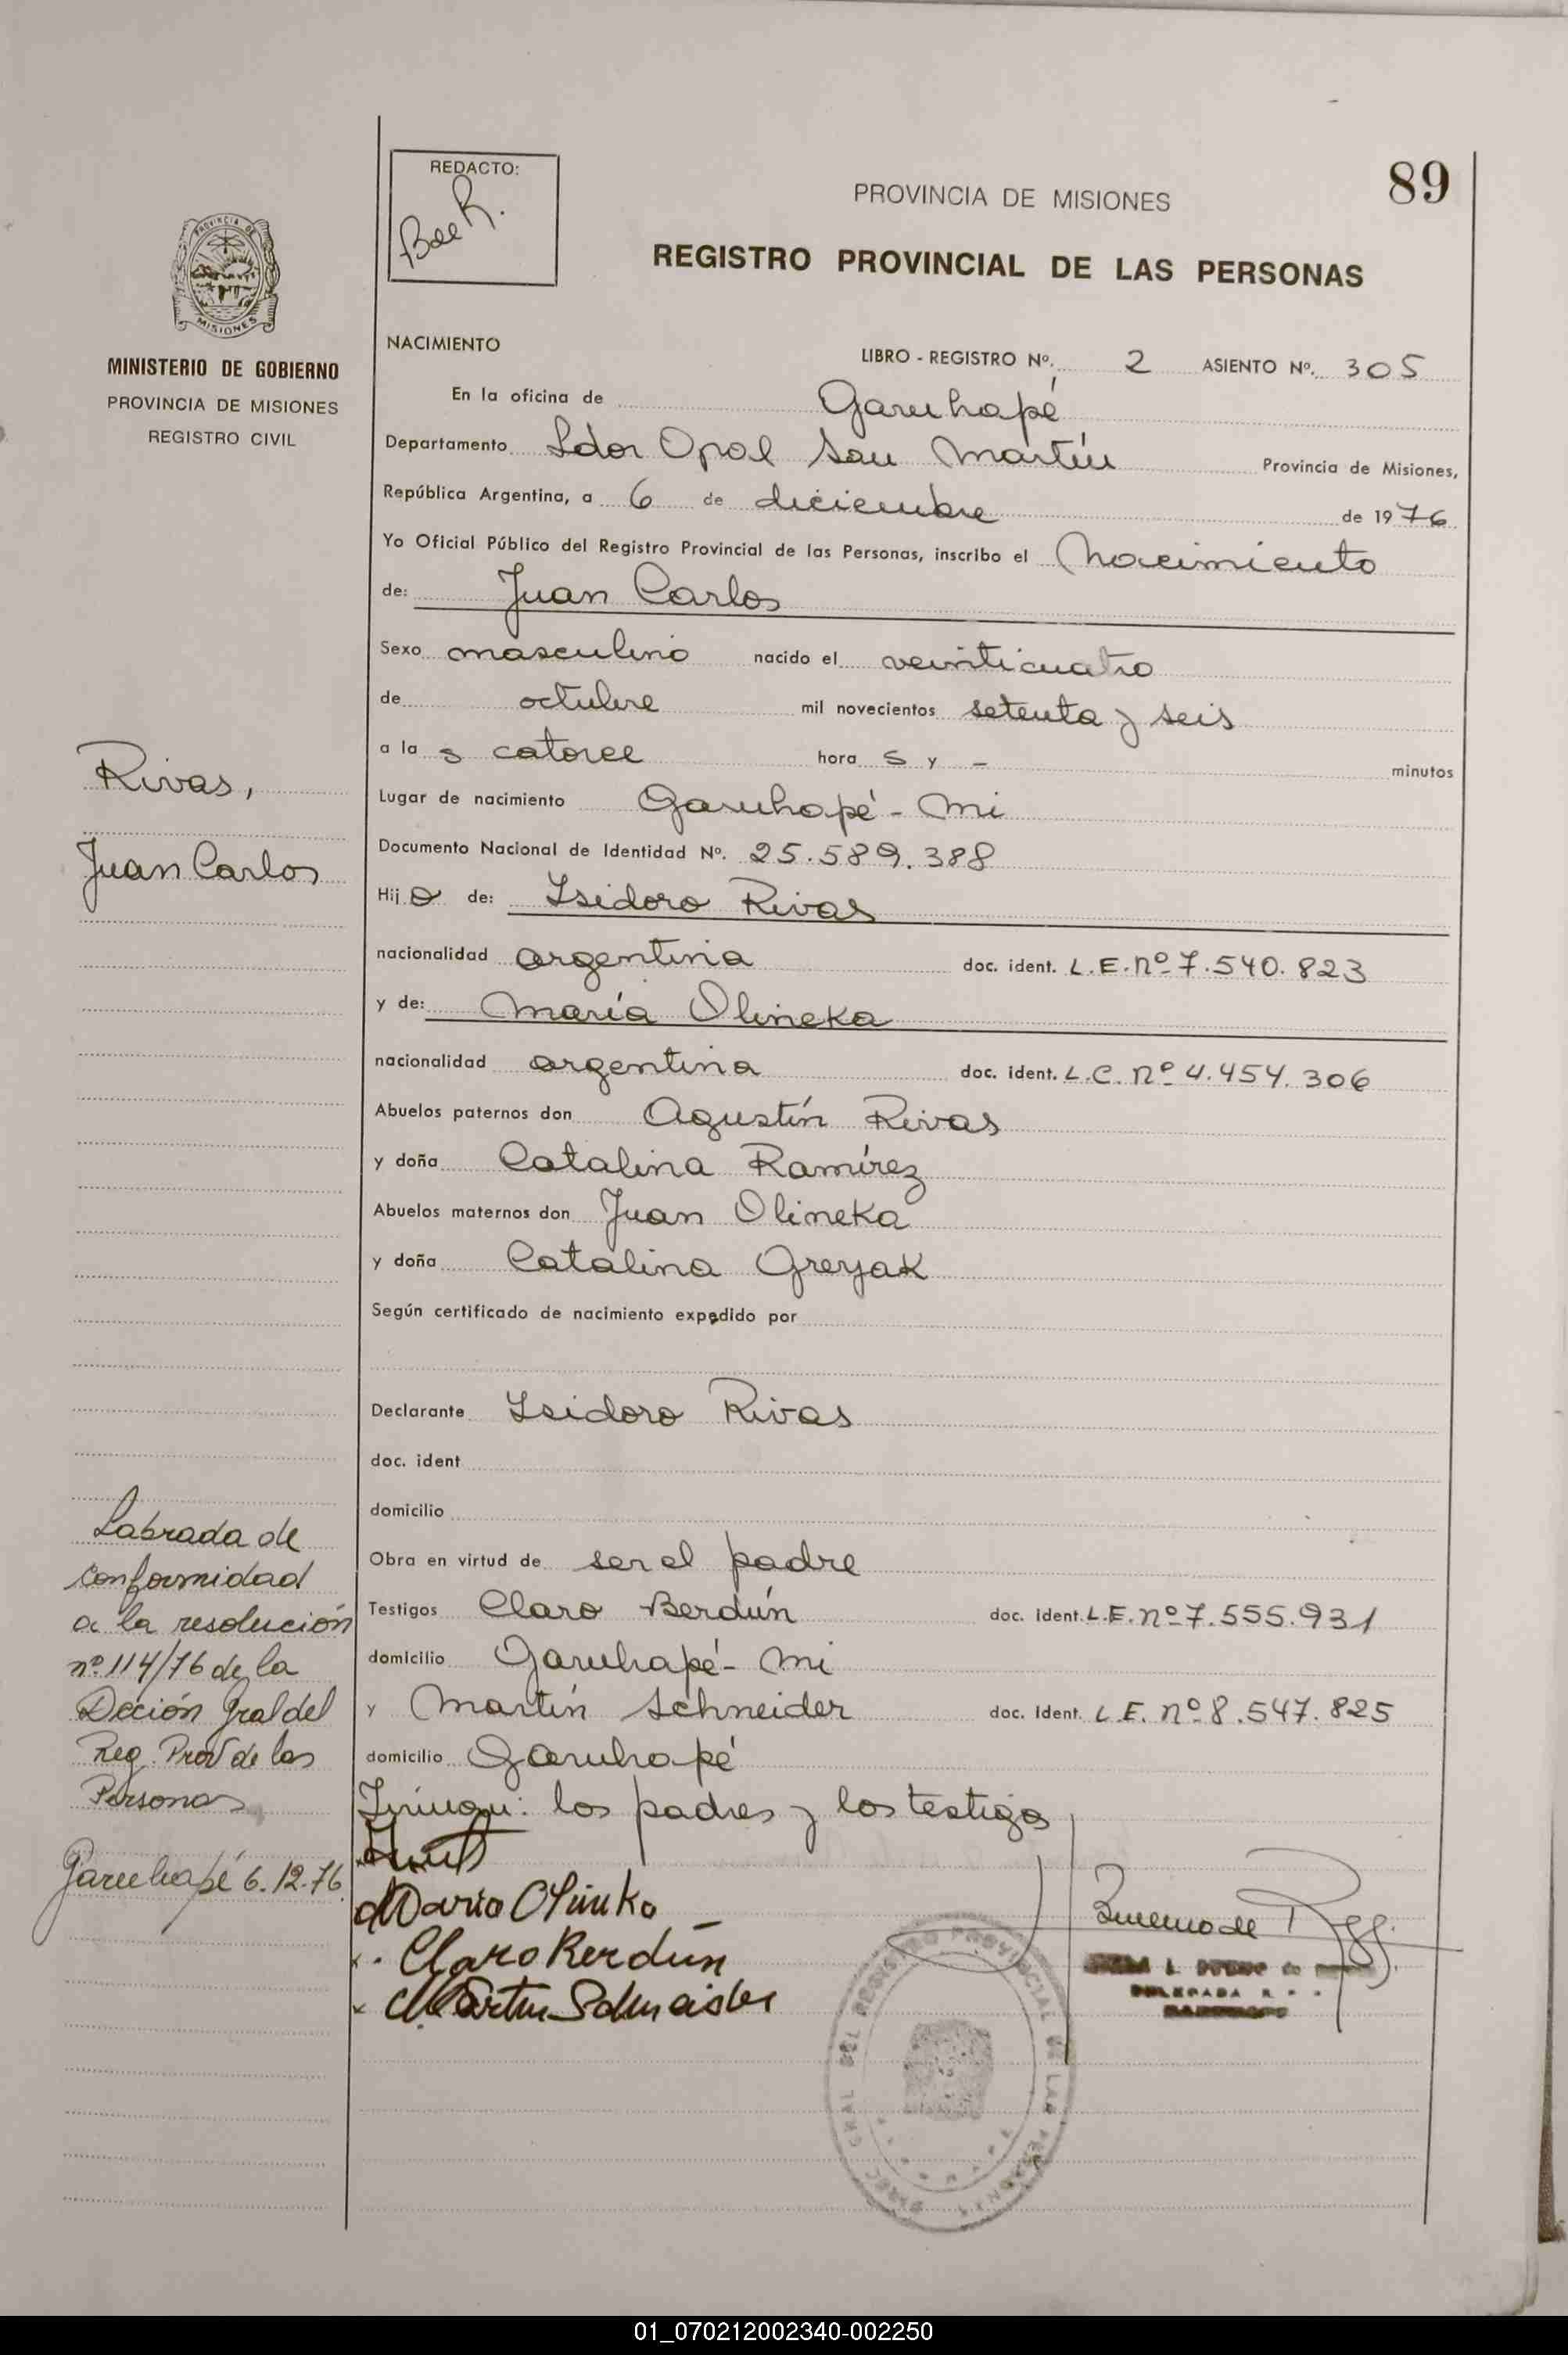 REDACTO:
Bae R.
PROVINCIA DE MISIONES
89
REGISTRO PROVINCIAL DE LAS PERSONAS
PROVINCIA DE
MISIONES
MINISTERIO DE GOBIERNO
PROVINCIA DE MISIONES
REGISTRO CIVIL
NACIMIENTO
LIBRO - REGISTRO Nº. 2 ASIENTO Nº. 305
En la oficina de Garuhapé
Departamento Ldor Gral San Martín Provincia de Misiones,
República Argentina, a 6 de diciembre de 1976
Yo Oficial Público del Registro Provincial de las Personas, inscribo el Nacimiento
de: Juan Carlos
Sexo masculino nacido el veinticuatro
de octubre mil novecientos setenta y seis
a la s catorce hora s y - minutos
Lugar de nacimiento Garuhapé - Mi
Documento Nacional de Identidad Nº. 25.589.388
Hij o de: Isidoro Rivas
nacionalidad argentina doc. ident. L.E. nº 7.540.823
y de: María Olineka
nacionalidad argentina doc. ident. L.C. nº 4.454.306
Abuelos paternos don Agustín Rivas
y doña Catalina Ramírez
Abuelos maternos don Juan Olineka
y doña Catalina Greyak
Según certificado de nacimiento expedido por
Declarante Isidoro Rivas
doc. ident
domicilio
Obra en virtud de ser el padre
Testigos Claro Berdún doc. ident. L.E. nº 7.555.931
domicilio Garuhapé - Mi
y Martín Schneider doc. ident. L.E. nº 8.547.825
domicilio Garuhapé
Firman: los padres y los testigos
Maria Olinka
Claro Berdún
Martin Schneider
Bueno de
DELEGADA
REGISTRO PROVINCIAL DE LAS PERSONAS
Rivas,
Juan Carlos
Labrada de
conformidad
a la resolución
nº 114/76 de la
Dección Gral del
Reg. Prov de las
Personas
Garuhapé 6.12.76
01_070212002340-002250